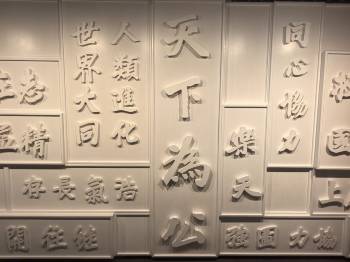 同心協力
樂天
上
天下為公
人類進化
世界大同
精
浩氣長存
協力圖強
繼往開